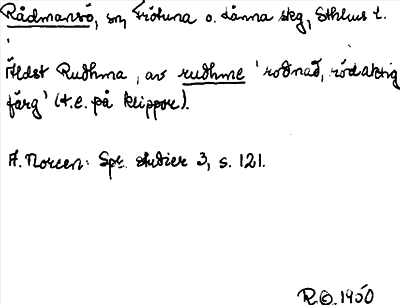 Rådmansö, sn, Frötuna o. Länna skg, Sthlms l.
Äldst Rudhma, av rudhme 'rodnad, rödaktig
färg' (t.e. på klippor).
A. Noreen: Spr. studier 3, s. 121.
R.Ö. 1950